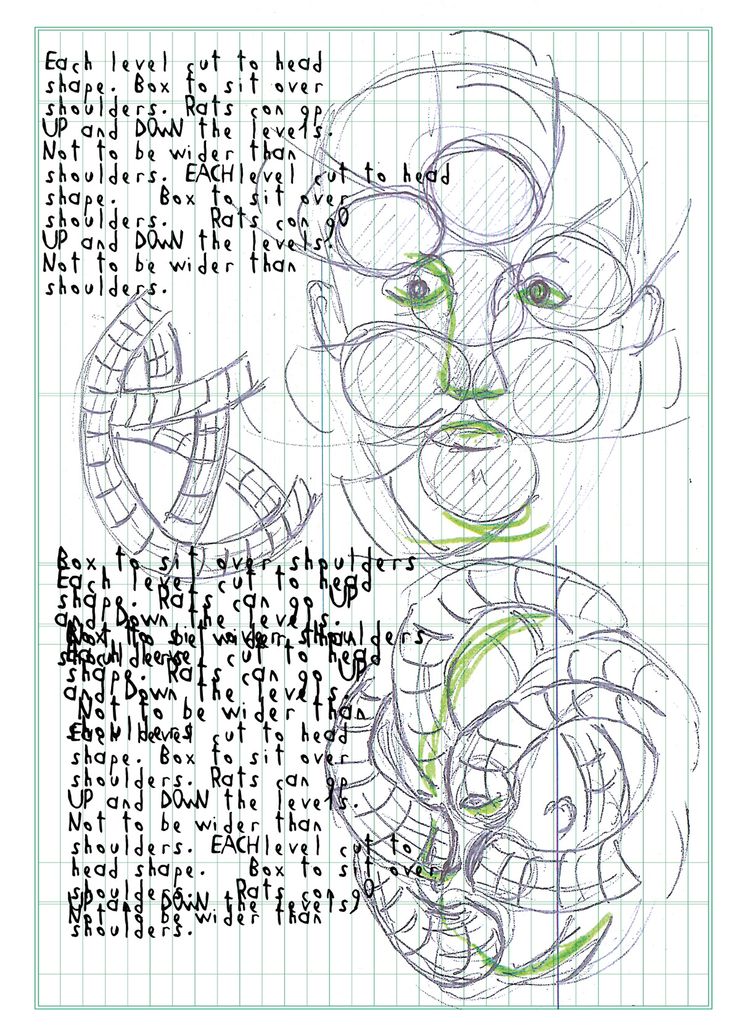 Each level cut to head
shape. Box to sit over
shoulders. Rats con gp
UP and DOWN the levels.
Not to be wider than
shoulders. EACH level cut to head
shape. Box to sit over
shoulders. Rats con gO
UP and DOWN the levels.
Not to be wider than
shoulders.
Box to sit over shoulders
Each level cut to head
shape. Rats can go UP
and Down the levels.
Box to sit over shoulders
Not to be wider than
shoulders
Each level cut to head
shape. Rats can go UP
and Down the levels.
Not to be wider than
shoulders
Each level cut to head
shape. Box to sit over
shoulders. Rats can gp
UP and DOWN the levels.
Not to be wider than
shoulders. EACH level cut to
head shape. Box to sit over
shoulders. Rats con gO
UP and DOWN the levels.
Not to be wider than
shoulders.